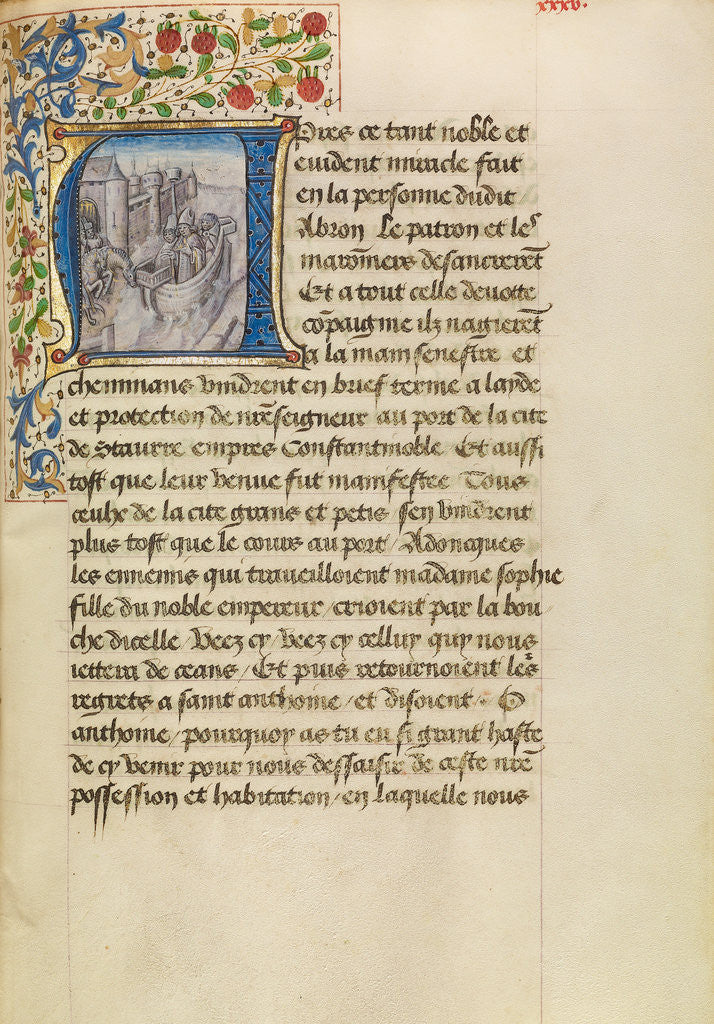 xxxv.
Apres ce tant noble et
euident miracle fait
en la personne dudit
Abron Le patron et les
maronniers desancrerẽt
Et a tout celle deuote
cõpaignie ilz nagierẽt
a la main senestre et
cheminans vindrent en brief terme a layde
et protection de nr̃e seigneur au port de la cite
de Staurre empres Constantinoble / Et aussi
tost que leur venue fut manifestee Tous
ceulx de la cite grans et petis sen vindrent
plus tost que le cours au port / Adoncques
les ennemis qui traueilloient madame sophie
fille du noble empereur / crioient par la bou
che dicelle / Veez cy / veez cy celluy quy nous
iettera de ceans / Et puis retournoient leˢrs
regrets a saint anthoine / et disoient / O
anthoine / pourquoy as tu eu si grant haste
de cy venir pour nous dessaisir de ceste nr̃e
possession et habitation / en laquelle nous